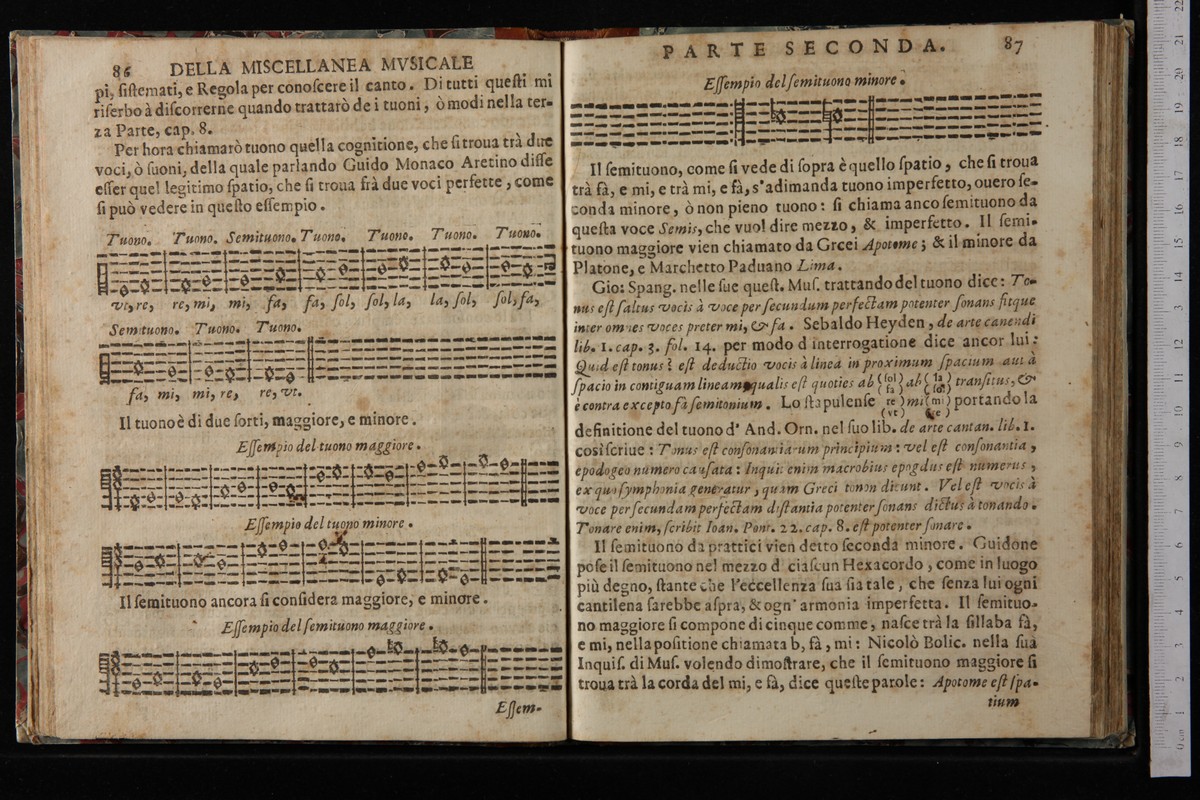 86 DELLA MISCELLANEA MVSICALE
pi, ſiſtemati, e Regola per conoſcere il canto. Di tutti queſti mi
riſerbo à diſcorrerne quando trattarò de i tuoni, ò modi nella ter-
za Parte, cap. 8.
Per hora chiamarò tuono quella cognitione, che ſi troua trà due
voci, ò ſuoni, della quale parlando Guido Monaco Aretino diſſe
eſſer quel legitimo ſpatio, che ſi troua frà due voci perfette, come
ſi può vedere in queſto eſſempio.
Tuono. Tuono. Semituono. Tuono. Tuono. Tuono. Tuono.
vt, re, re, mi, mi, fa, fa, ſol, ſol, la, la, ſol, ſol, fa,
Semituono. Tuono. Tuono.
fa, mi, mi, re, re, vt.
Il tuono è di due ſorti, maggiore, e minore.
Eſſempio del tuono maggiore.
Eſſempio del tuono minore.
Il ſemituono ancora ſi conſidera maggiore, e minore.
Eſſempio del ſemituono maggiore.
Eſſem-
PARTE SECONDA. 87
Eſſempio del ſemituono minore.
Il ſemituono, come ſi vede di ſopra è quello ſpatio, che ſi troua
trà fà, e mi, e trà mi, e fà, s'adimanda tuono imperfetto, ouero ſe-
conda minore, ò non pieno tuono: ſi chiama anco ſemituono da
queſta voce Semis, che vuol dire mezzo, & imperfetto. Il ſemi-
tuono maggiore vien chiamato da Grcei Apotome; & il minore da
Platone, e Marchetto Paduano Lima.
Gio: Spang. nelle ſue queſt. Muſ. trattando del tuono dice: To-
nus eſt ſaltus vocis à voce per ſecundum perfectam potenter ſonans fitque
inter omnes voces preter mi, & fa. Sebaldo Heyden, de arte canendi
lib. 1. cap. 3. fol. 14. per modo d interrogatione dice ancor lui:
Quid eſt tonus? eſt deductio vocis à linea in proximum ſpacium aut à
ſpacio in contiguam lineam qualis eſt quoties ab (ſol fa) ab (la ſol) tranſitus, &
è contra excepto fa ſemitonium. Lo ſtapulenſe (re vt) mi (mi re) portando la
definitione del tuono d' And. Orn. nel ſuo lib. de arte cantan. lib. 1.
così ſcriue: Tonus eſt conſonantiarum principium: vel eſt conſonantia,
epodogeo numero cauſata: Inquit enim macrobius epogdus eſt numerus,
ex quo ſymphonia generatur, quam Greci tonon dicunt. Vel eſt vocis à
voce per ſecundam perfectam diſtantia potenter ſonans dictus à tonando.
Tonare enim, ſcribit Ioan. Pont. 22. cap. 8. eſt potenter ſonare.
Il ſemituono da prattici vien detto ſeconda minore. Guidone
poſe il ſemituono nel mezzo d ciaſcun Hexacordo, come in luogo
più degno, ſtante che l'eccellenza ſua ſia tale, che ſenza lui ogni
cantilena ſarebbe aſpra, & ogn' armonia imperfetta. Il ſemituo-
no maggiore ſi compone di cinque comme, naſce trà la ſillaba fà,
e mi, nella poſitione chiamata b, fà, mi: Nicolò Bolic. nella ſua
Inquiſ. di Muſ. volendo dimoſtrare, che il ſemituono maggiore ſi
troua trà la corda del mi, e fà, dice queſte parole: Apotome eſt ſpa-
tium